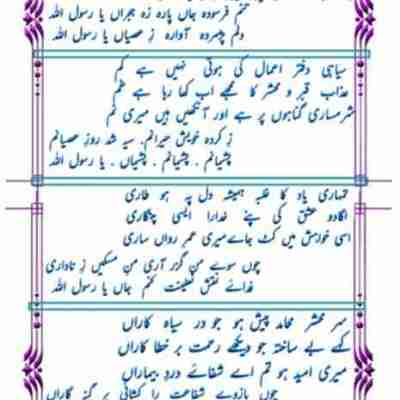 تنم فرسودہ جاں پارہ زہ ہجراں یا رسول اللہ
دلم پژمردہ آوارہ زِ عصیاں یا رسول اللہ
سیاہی دفتر اعمال کی ہوتی نہیں ہے کم
عذاب قبر و محشر کا مجھے اب کھا رہا ہے غم
شرمساری گناہوں پر ہے اور آنکھیں ہیں میری نم
زِ کردہ خویش حیرانم، سیہ شد روزِ عصیانم
پشیمانم، پشیمانم، پشیماں، یا رسول اللہ
تمہاری یاد کا غلبہ ہمیشہ دل پہ ہو طاری
لگادو عشق کی اپنے خدارا ایسی چنگاری
اسی خواہش میں کٹ جاے میری عمر رواں ساری
چوں سوے من گزر آری من مسکیں زِ ناداری
فدائے نقش نعلینت کنم جاں یا رسول اللہ
سر محشر محامد پیش ہو جو در سیاہ کاراں
کہے بے ساختہ جو دیکھے رحمت بر خطا کاراں
میری امید ہو تم اے شفائے درد بیماراں
چوں بازوے شفاعت را کشائی بر گنہ گاراں